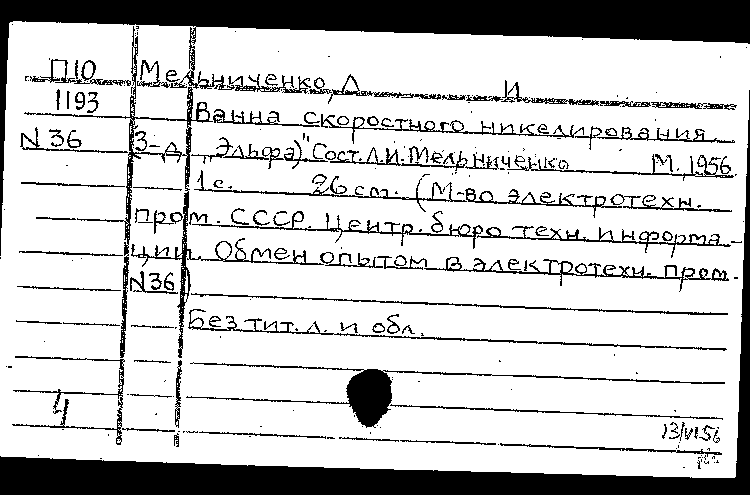 П10 Мельниченко, Л И
1193 Ванна скоростного никелирования.
N 36 (З-д „Эльфа)". Сост. Л.И. Мельниченко М., 1956
1 с. 26 см. (М-во электротехн.
пром. СССР. Центр. бюро техн. информа-
ции. Обмен опытом в электротехн. пром.
N36)
Без тит. л. и обл.
4
13/VI 56